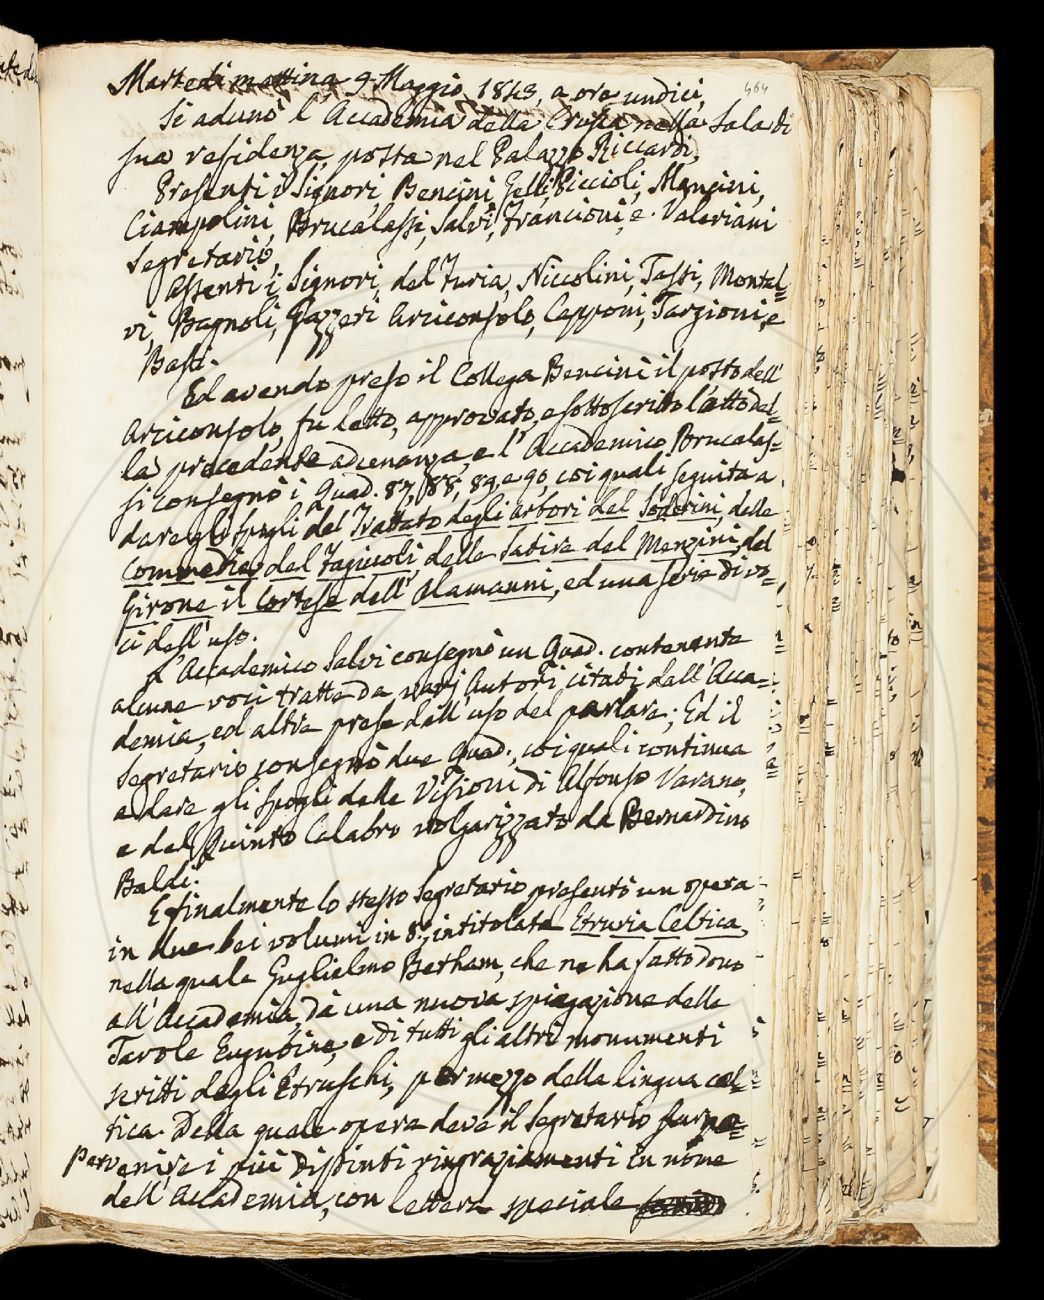 464
Martedì mattina 9 Maggio 1843, a ore undici,
si adunò l'Accademia della Crusca nella Sala di
sua residenza, posta nel Palazzo Riccardi,
Presenti i Signori Bencini, Gelli, Piccioli, Mancini,
Ciampolini, Brucalassi, Salvi, Francioni, e Valeriani
Segretario,
Assenti i Signori, del Furia, Niccolini, Tassi, Montal=
vi, Bagnoli, Gazzeri Arciconsolo, Capponi, Targioni, e
Basti.
Ed avendo preso il Collega Bencini il posto dell'
Arciconsolo, fu letto, approvato, e sottoscritto l'atto del=
la precedente adunanza, e l'Accademico Brucalas=
si consegnò i Quad. 87, 88, 89, e 90, coi quali seguita a
dare gli spogli del Trattato degli arbori del Soderini, delle
Commedie del Fagiuoli, delle Satire del Menzini, del
Girone il Cortese dell'Alamanni, ed una serie di vo=
ci dell'uso.
L'Accademico Salvi consegnò un Quad. contenente
alcune voci tratte da varj Autori citati dall'Acca=
demia, ed altre prese dall'uso del parlare; Ed il
Segretario consegnò due Quad., coi quali continua
a dare gli spogli delle Visioni di Alfonso Varano,
e del Quinto Calabro volgarizzato da Bernardino
Baldi.
E finalmente lo stesso Segretario presentò un opera
in due bei volumi in 8., intitolata Etruria Celtica,
nella quale Guglielmo Betham, che ne ha fatto dono
all'Accademia, dà una nuova spiegazione delle
Tavole Eugubine, e di tutti gli altri monumenti
scritti degli Etruschi, per mezzo della lingua cel=
tica. Della quale opera deve il Segretario far pe=
pervenire i più distinti ringraziamenti in nome
dell'Accademia, con lettera speciale